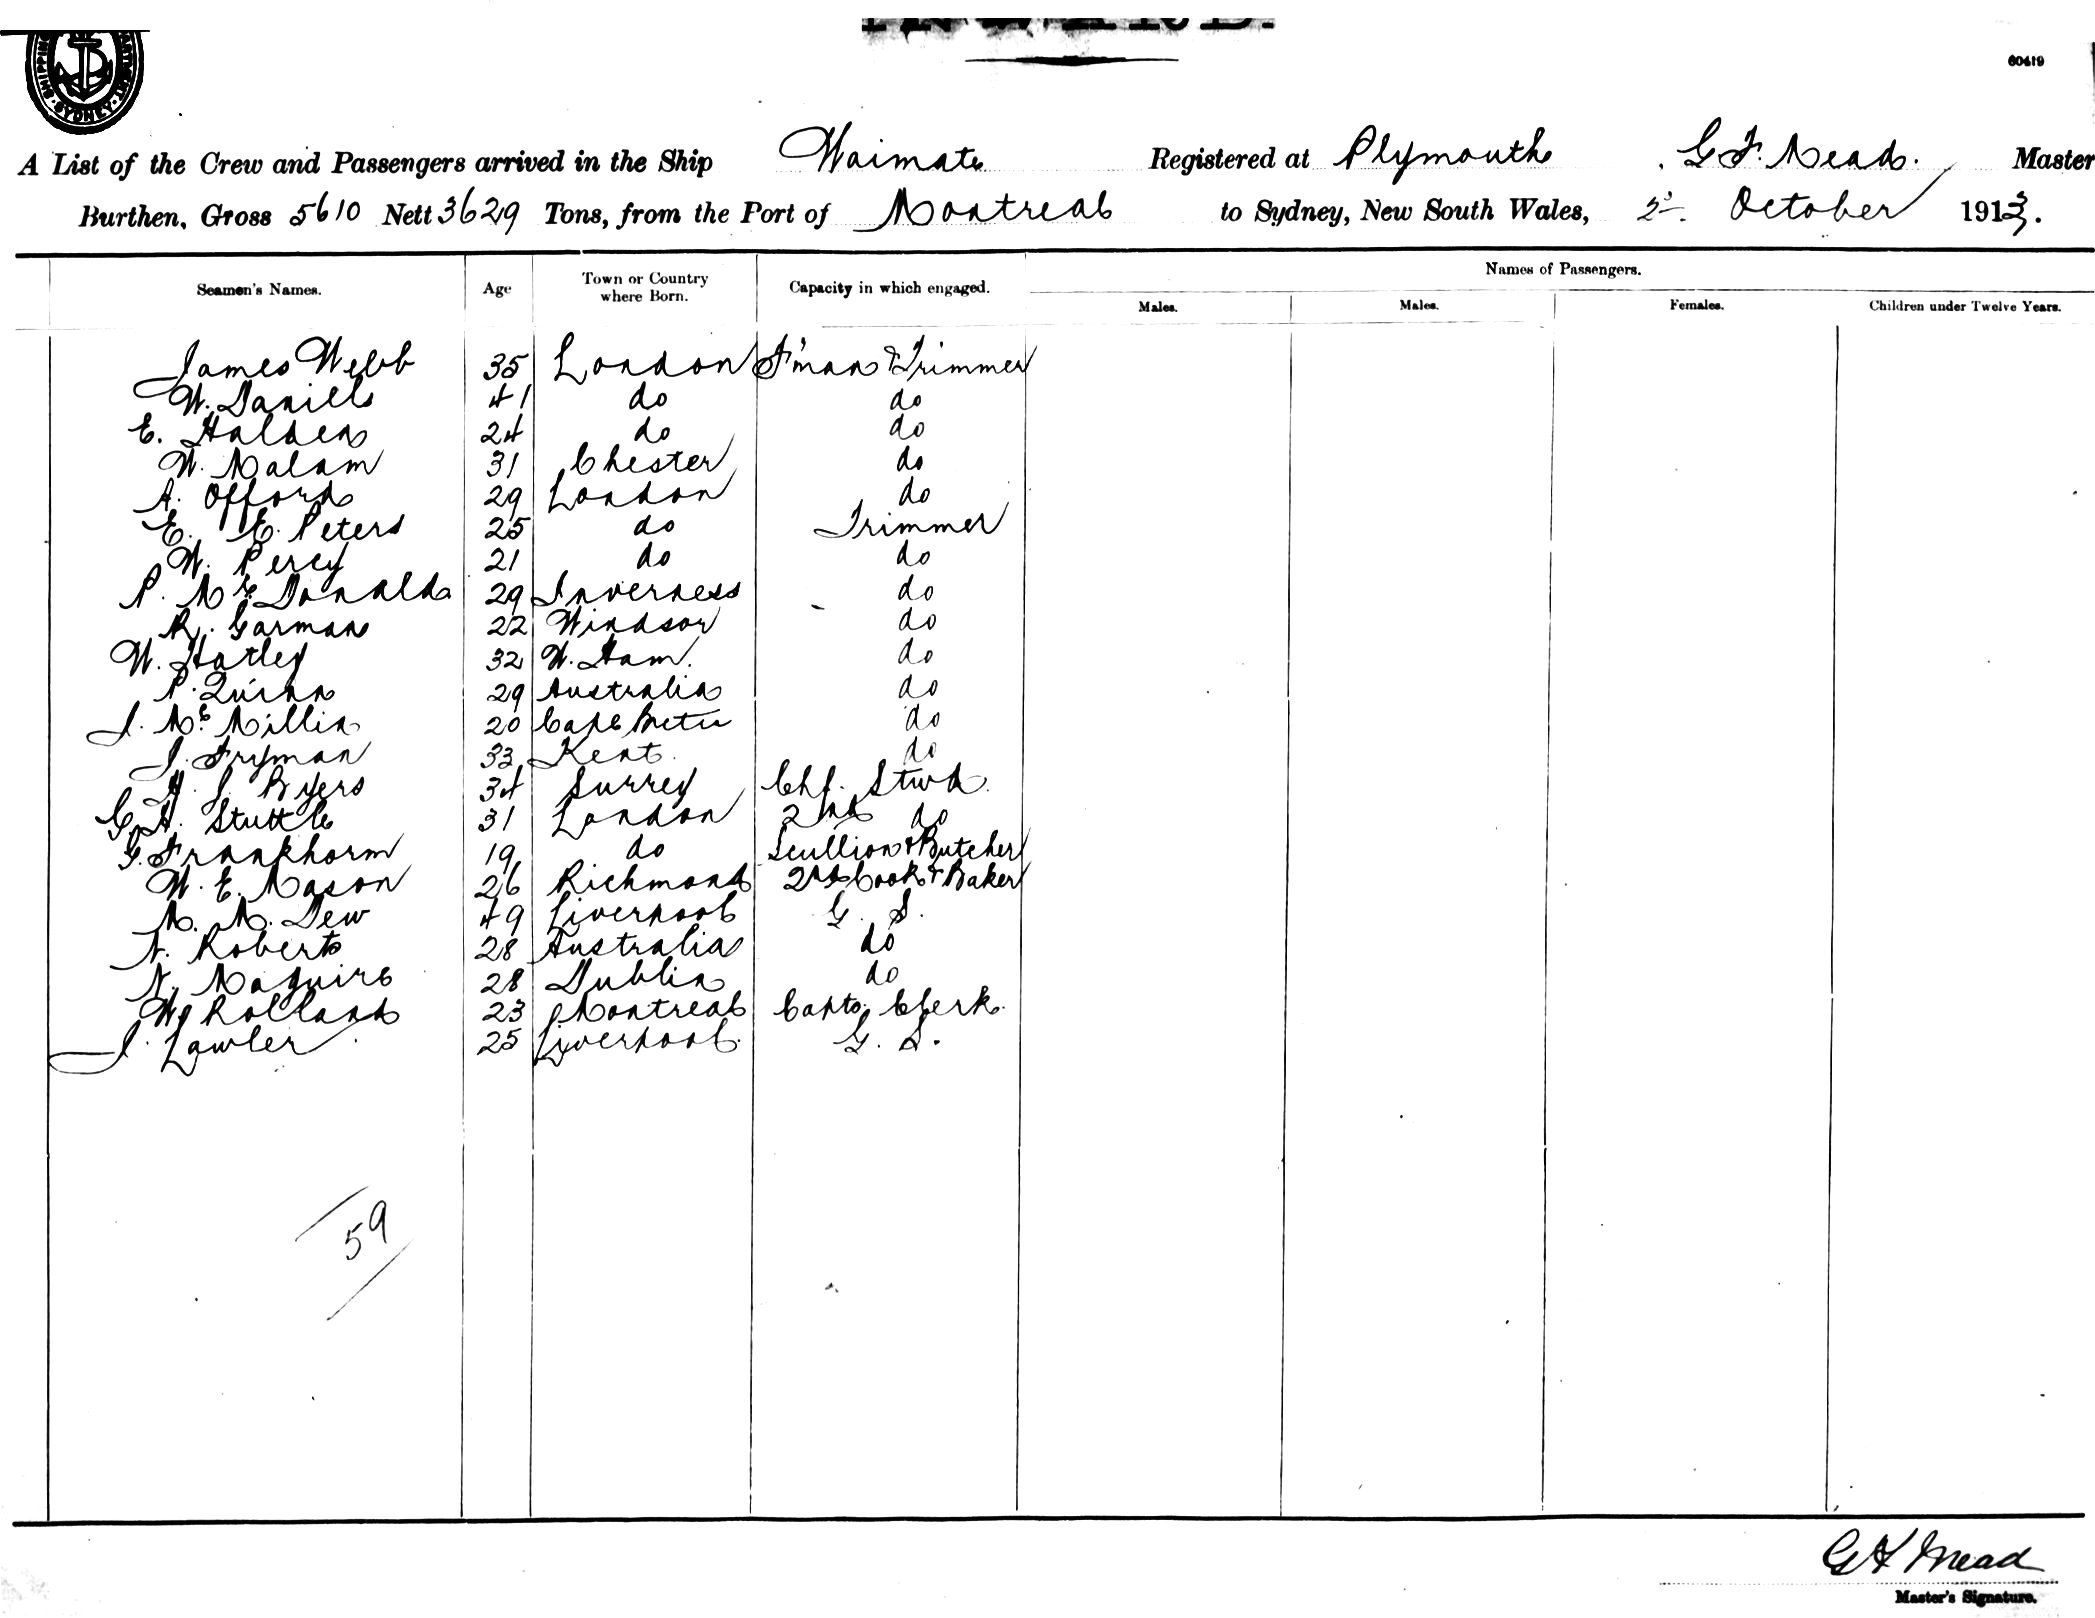 SHIPPING SYDNEY
60419
A List of the Crew and Passengers arrived in the Ship Waimate Registered at Plymouth, G F. Mead. Master
Burthen, Gross 5610 Nett 3629 Tons, from the Port of Montreal to Sydney, New South Wales, 2. October 1913.
Names of Passengers.
Seamen's Names. Age Town or Country where Born. Capacity in which engaged. Males. Males. Females. Children under Twelve Years.
James Webb 35 London F'man & Trimmer
W. Daniels 41 do do
E. Halden 24 do do
W. Malam 31 Chester do
A. Offord 29 London do
E. E. Peters 25 do Trimmer
W. Percy 21 do do
P. Mc Donald 29 Inverness do
R. Garman 22 Windsor do
W. Hatley 32 W. Ham. do
P. Quinn 29 Australia do
J. Mc Millin 20 Cape do
J. Fryman 33 Kent. do
H. J. Byers 34 Surrey Chf. Stwd.
C. H. Stuttle 31 London 2nd do
G. Frankhorm 19 do Scullion & Butcher
W. E. Mason 26 Richmond 2nd Cook & Baker
M. M. Dew 49 Liverpool G. S.
N. Roberts 28 Australia do
N. Maguire 28 Dublin do
W. Rolland 23 Montreal Capts. Clerk.
J. Lawler. 25 Liverpool. G. S.
59
G F Mead
Master's Signature.